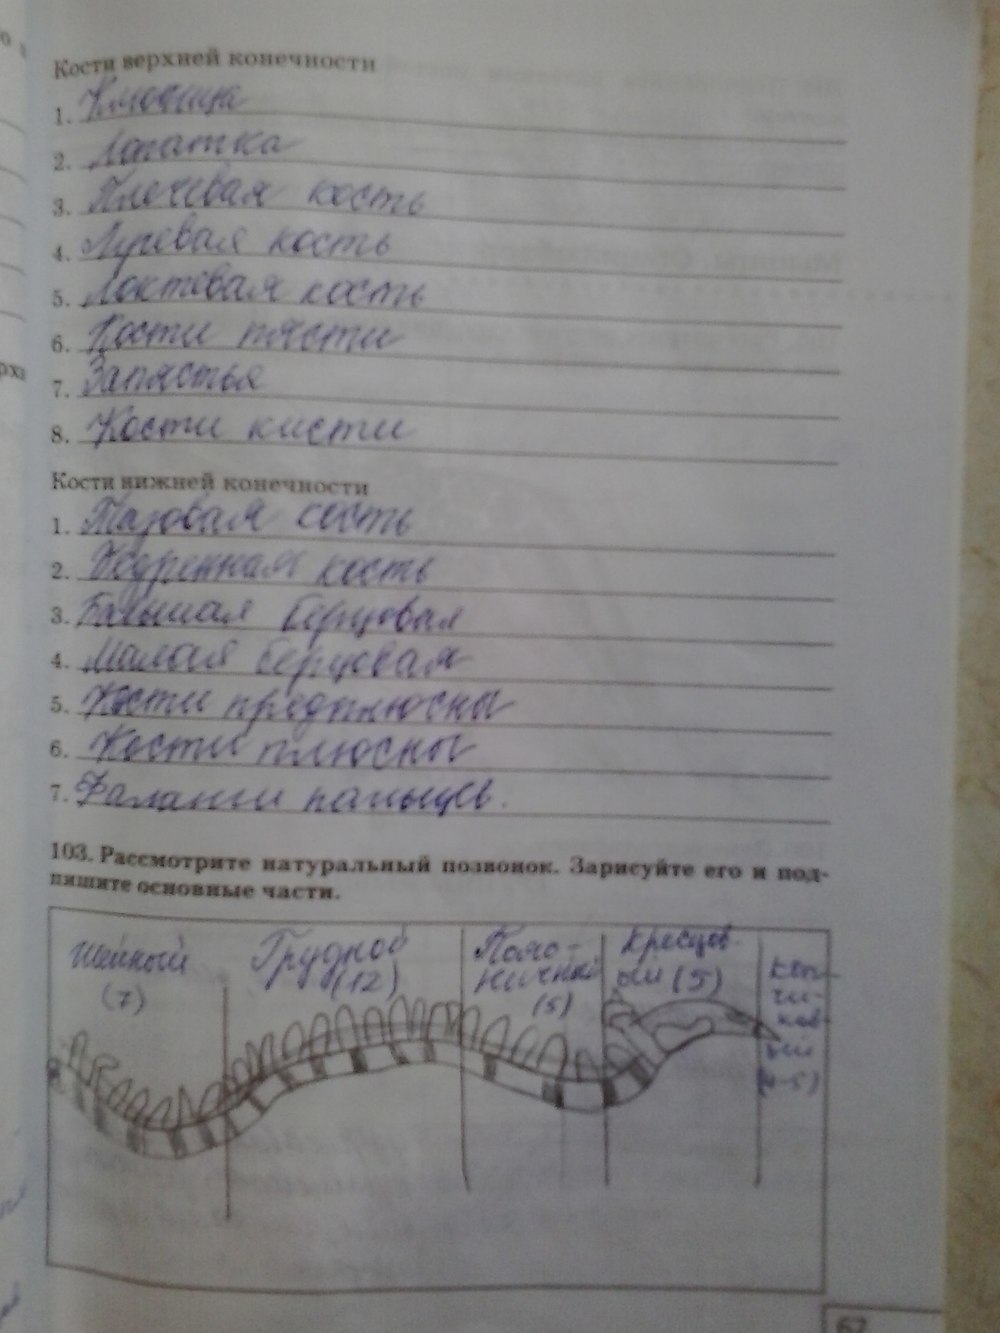 Кости верхней конечности
1. Ключица
2. Лопатка
3. Плечевая кость
4. Лучевая кость
5. Локтевая кость
6. Кости пясти
7. Запястья
8. Кости кисти
Кости нижней конечности
1. Тазовая кость
2. Бедренная кость
3. Большая берцовая
4. Малая берцовая
5. Кости предплюсны
6. Кости плюсны
7. Фаланги пальцев.
103. Рассмотрите натуральный позвонок. Зарисуйте его и под-
пишите основные части.
Шейный
(7)
Грудной
(12)
Пояс-
ничный
(5)
Крестцов-
ый (5)
Коп-
чи-
ков-
ый
(4-5)
62